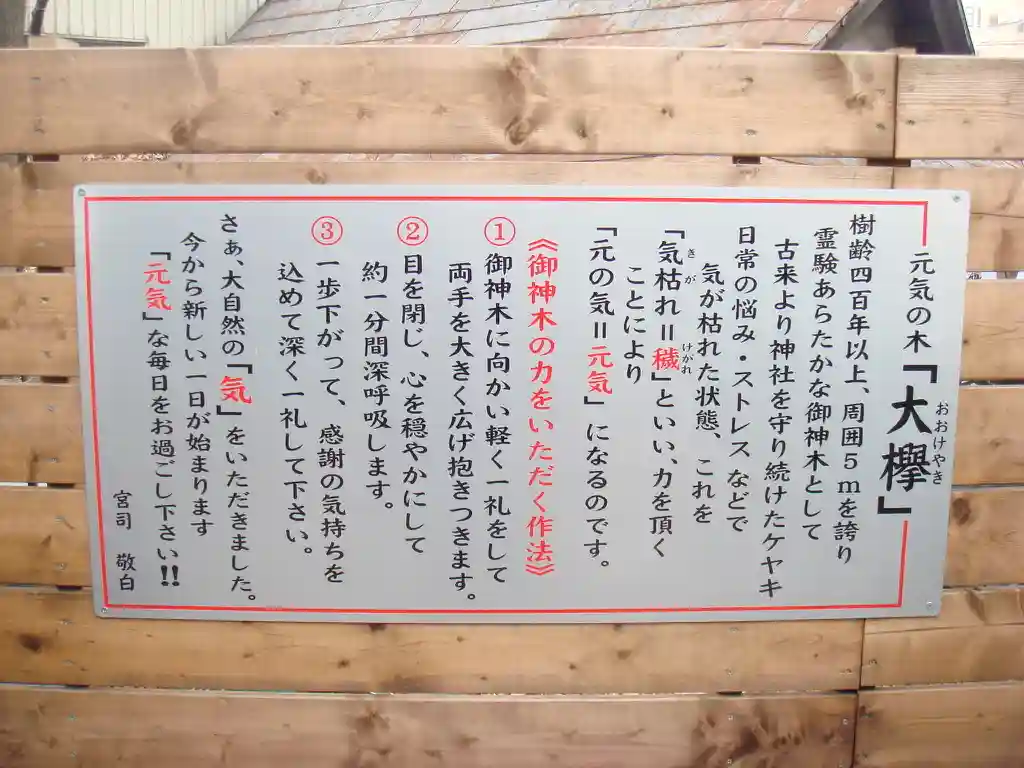 元気の木「大欅」
おおけやき
樹齢四百年以上、周囲5mを誇り
霊験あらたかな御神木として
古来より神社を守り続けたケヤキ
日常の悩み・ストレスなどで
気が枯れた状態、これを
「気枯れ＝穢」といい、力を頂く
きが
けがれ
ことにより
「元の気＝元気」になるのです。
《御神木の力をいただく作法》
①御神木に向かい軽く一礼をして
両手を大きく広げ抱きつきます。
②目を閉じ、心を穏やかにして
約一分間深呼吸します。
③一歩下がって、感謝の気持ちを
込めて深く一礼して下さい。
さぁ、大自然の「気」をいただきました。
今から新しい一日が始まります
「元気」な毎日をお過ごし下さい!!
宮司 敬白